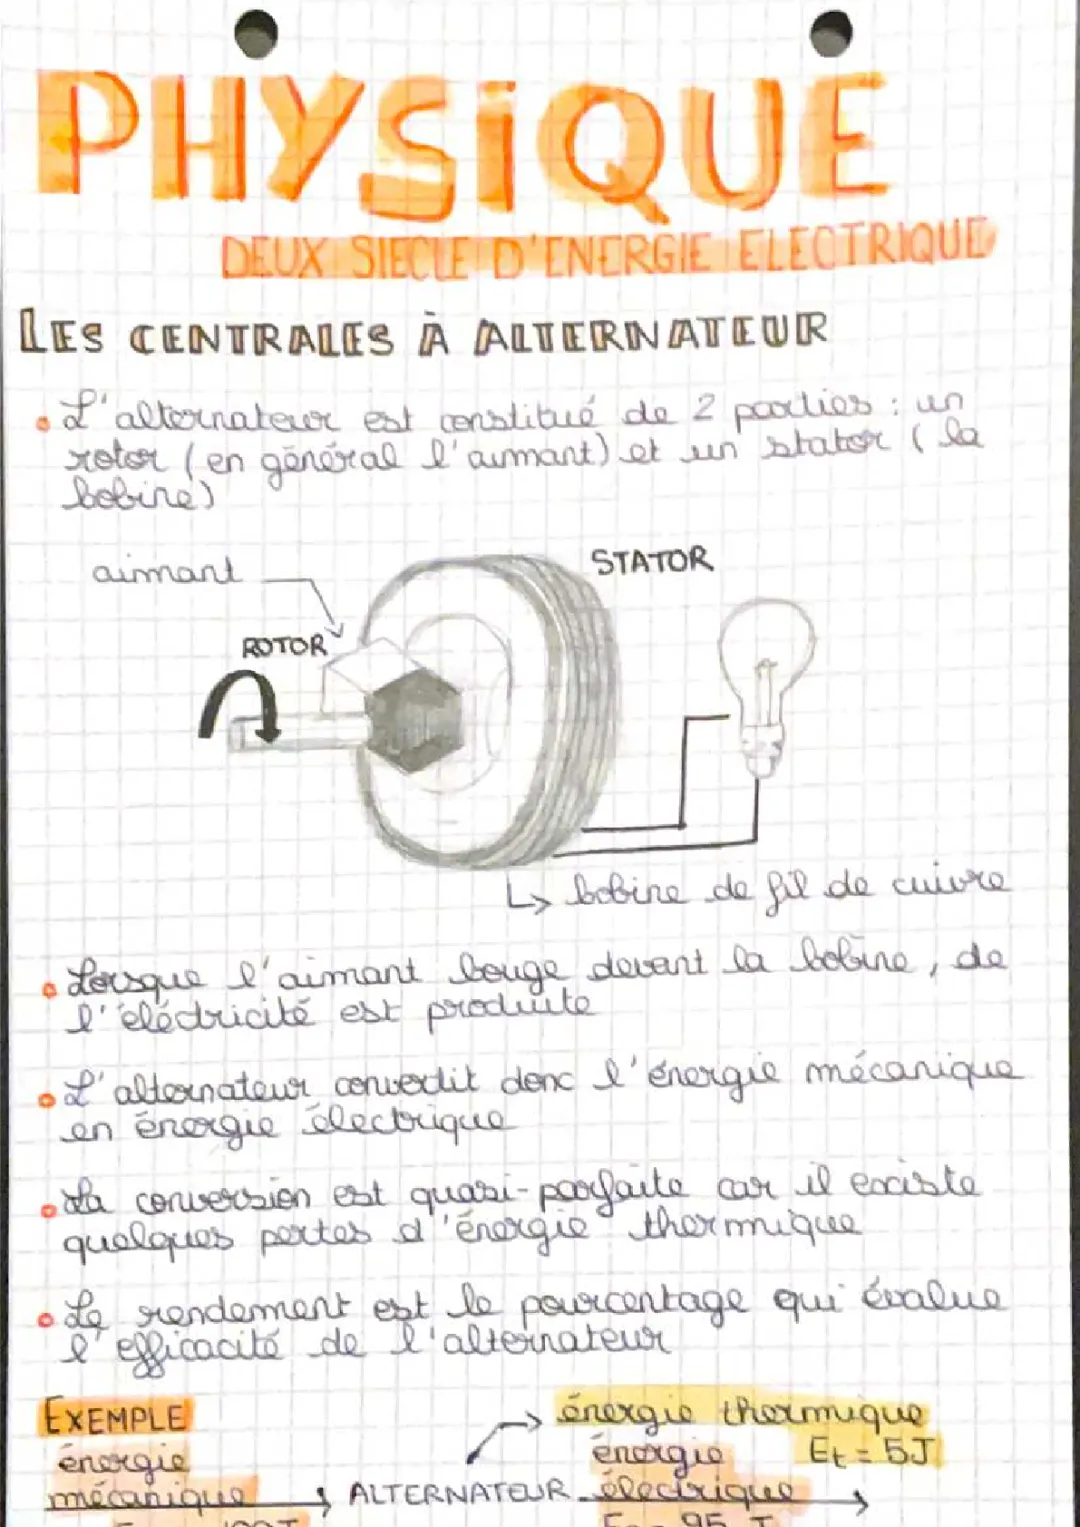 PHYSiQUE
DEUX SIECLE D'ENERGIE ELECTRIQUE
LES CENTRALES À ALTERNATEUR
• L'alternateur est constitué de 2 parties : un
rotor (en général l'aimant) et un stator ( la
bobine)
aimant
STATOR
ROTOR
↳ bobine de fil de cuivre
• Lorsque l'aimant bouge devant la bobine, de
l'eléctricité est produite
• L'alternateur convertit donc l'énergie mécanique
en énergie électrique
• La conversion est quasi-parfaite car il existe
quelques pertes d'énergie thermique
• Le rendement est le pourcentage qui évalue
l'efficacité de l'alternateur
EXEMPLE
énergie thermique
énergie
énergie
Et = 5J
mécanique
ALTERNATEUR
électrique
95 J